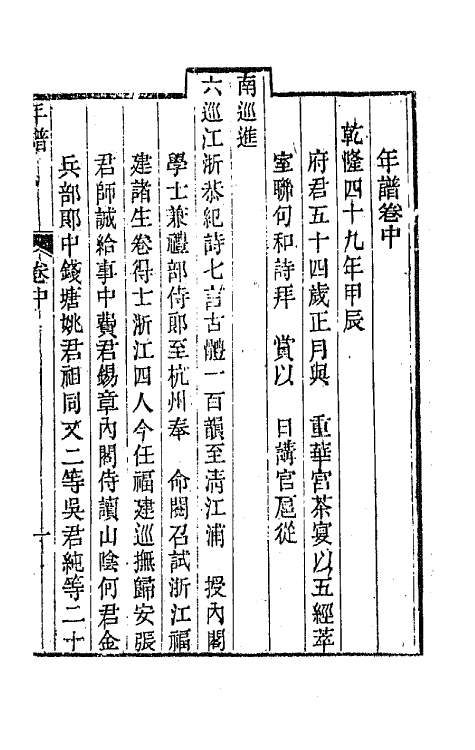 年譜卷中
乾隆四十九年甲辰
府君五十四歲正月與　重華宮茶宴以五經萃
室聯句和詩拜　賞以　日講官扈從
南巡進
六巡江浙恭紀詩七言古體一百韻至清江浦　授內閣
學士兼禮部侍郎至杭州奉　命閱召試浙江福
建諸生卷得士浙江四人今任福建巡撫歸安張
君師誠給事中費君錫章內閣侍讀山陰何君金
兵部郎中錢塘姚君祖同又二等吳君純等二十
年譜　卷中　一